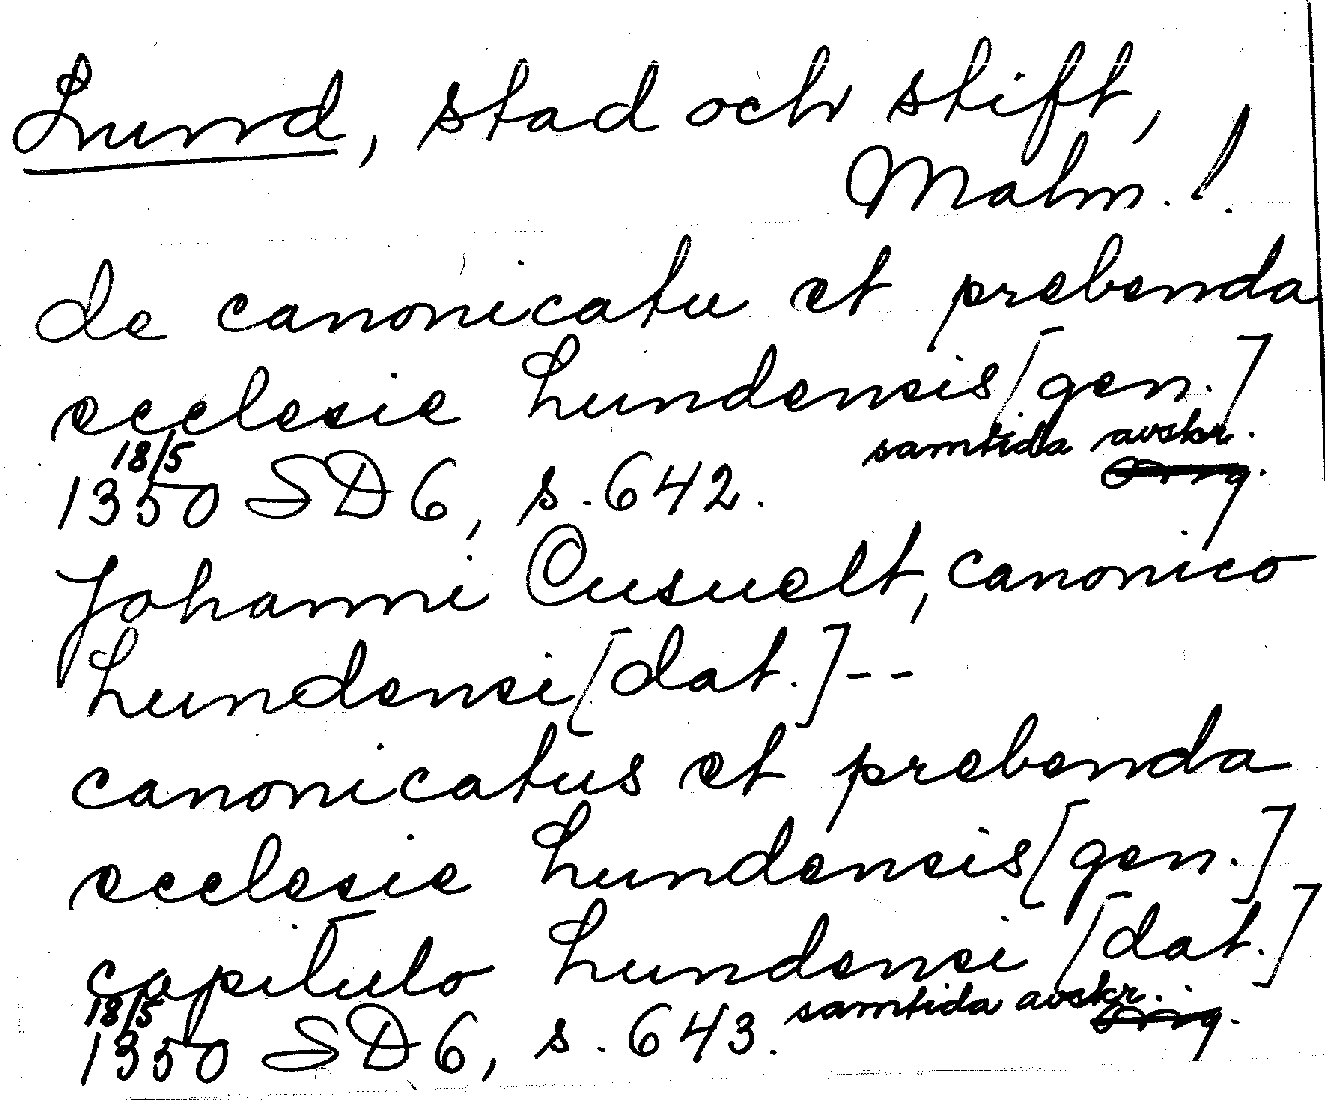 Lund, stad och stift,
Malm. !
de canonicatu et prebenda
ecclesie Lundensis [gen.]
18/5 samtida avskr.
1350 SD 6, s. 642. Orig.
Johanni Cusuelt, canonico
Lundensi [dat.] --
canonicatus et prebenda
ecclesie Lundensis [gen.]
capitulo Lundensi [dat.]
18/5 samtida avskr.
1350 SD 6, s. 643. Orig.